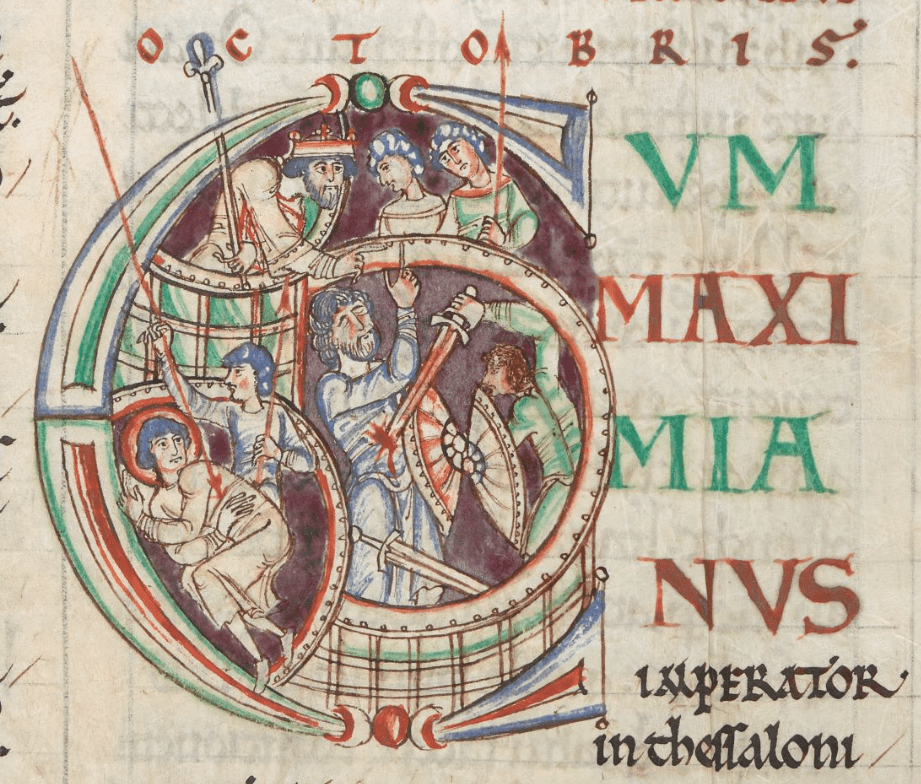 OCTOBRIS.
CUM
MAXI
MIA
NVS
IMPERATOR
in thessaloni